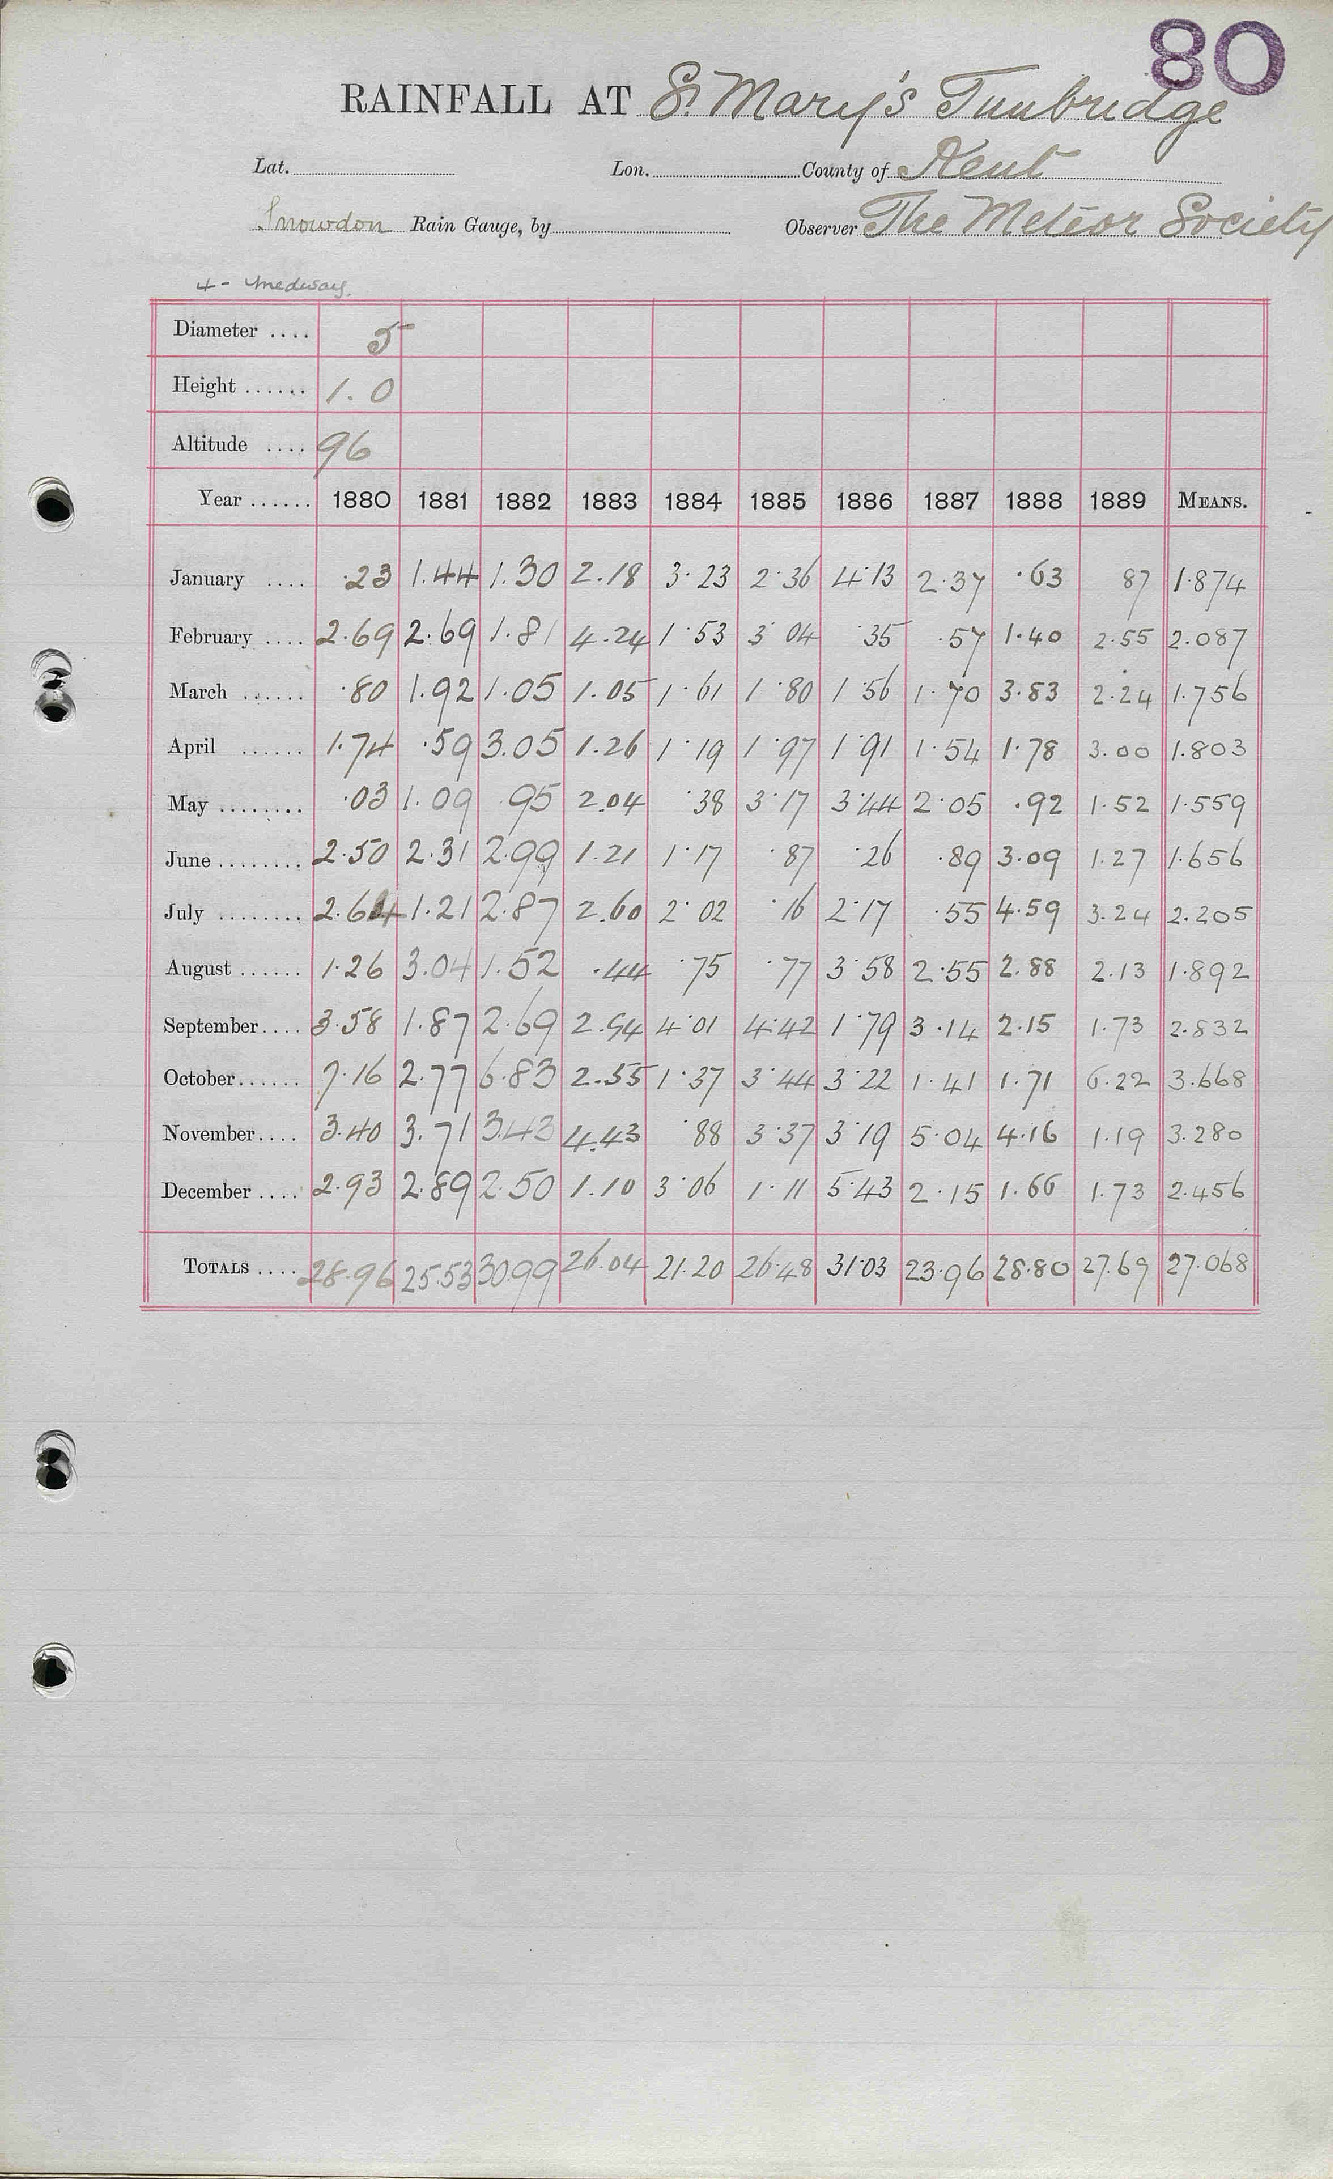 80
RAINFALL AT St Mary's Tunbridge
Lat. Lon. County of Kent
Snowdon Rain Gauge, by Observer The Meteor Society
4 - Medway.
Diameter .... 5
Height ...... 1.0
Altitude .... 96
Year ...... 1880 1881 1882 1883 1884 1885 1886 1887 1888 1889 MEANS.
January .... .23 1.44 1.30 2.18 3.23 2.36 4.13 2.37 .63 87 1.874
February .... 2.69 2.69 1.81 4.24 1.53 3 04 .35 .57 1.40 2.55 2.087
March ...... .80 1.92 1.05 1.05 1.61 1.80 1.56 1.70 3.83 2.24 1.756
April ...... 1.74 .59 3.05 1.26 1.19 1.97 1.91 1.54 1.78 3.00 1.803
May ........ .03 1.09 .95 2.04 .38 3.17 3.44 2.05 .92 1.52 1.559
June ........ 2.50 2.31 2.99 1.21 1.17 .87 .26 .89 3.09 1.27 1.656
July ........ 2.64 1.21 2.87 2.60 2.02 .16 2.17 .55 4.59 3.24 2.205
August ...... 1.26 3.04 1.52 .44 .75 .77 3.58 2.55 2.88 2.13 1.892
September.... 3.58 1.87 2.69 2.94 4.01 4.42 1.79 3.14 2.15 1.73 2.832
October...... 7.16 2.77 6.83 2.55 1.37 3.44 3.22 1.41 1.71 6.22 3.668
November.... 3.40 3.71 3.43 4.43 .88 3.37 3.19 5.04 4.16 1.19 3.280
December .... 2.93 2.89 2.50 1.10 3.06 1.11 5.43 2.15 1.66 1.73 2.456
TOTALS .... 28.96 25.53 30.99 26.04 21.20 26.48 31.03 23.96 28.80 27.69 27.068